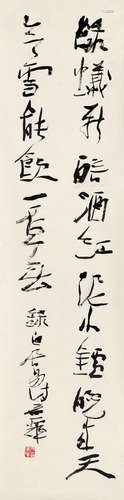 綠蟻新醅酒紅泥小火鑪晚來天
欲雪能飲一杯無 錄白居易詩